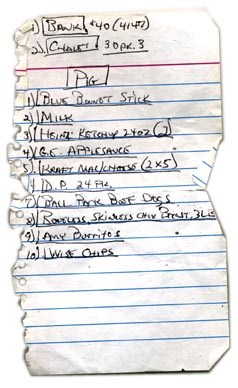 1) BANK $40 (4147)
2) CHALET 30 PK. 3
PIG
1) BLUE BONNET STICK
2) MILK
3) HEINZ KETCHUP 24OZ (2)
4) G.E. APPLESAUCE
5) KRAFT MAC/CHEESE (2X5)
D.P. 24 PK.
7) BALL PARK BEEF DOGS
8) BONELESS, SKINLESS CHIX BREAST, 3LB
9) AMY BURRITOS
10) WISE CHIPS